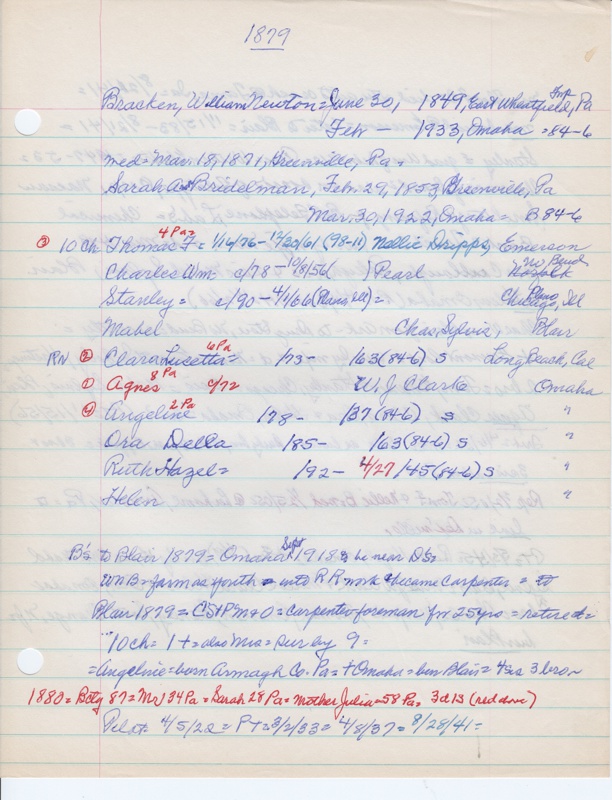 1879
Twp
Bracken, William Newton = June 30, 1849, East Wheatfield, Pa
Feb — 1933, Omaha = 84-6
med = Mar. 18, 1871, Greenville, Pa =
Sarah A = Bridelman, Feb. 29, 1853, Greenville, Pa
Mar. 30, 1922, Omaha = B 84-6
4 Pa =
③ 10 Ch Thomas F = 1/16/76 - 12/30/61 (98-11) Nellie Dripps, Emerson
Charles Wm c/78 - 10/8/56 ) Pearl No Bend Norfolk
Stanley = c/90 - 4/1/66 (Plano, Ill) = Chicago, Ill Plano
Mabel Chas, Sylvis, Blair
6 Pa
RN ② Clara Lucetta = /73 - /63 (84-6) s Long Beach, Cal
8 Pa
① Agnes c/72 W. J Clarke Omaha
④ Angeline 2 Pa /78 - /37 (84-6) s "
Ora Della /85 - /63 (84-6) s "
Ruth Hazel = /92 - 4/27 /45 (84-6) s "
Helen "
B's to Blair 1879 = Omaha Sept 1918 to be near D's
WNB = farm as youth = into RR work & became carpenter =
Blair 1879 = CStPM+O = carpenter foreman for 25 yrs = retired =
10 ch = 1 + = also Mrs = sur by 9 =
= Angeline = born Armagh Co. Pa = + Omaha = bur Blair = 4 sis 3 bro ~
1880 = Bctg 87 = Mr 34 Pa = Sarah 28 Pa = Mother Julia = 58 Pa = 3 d 1 s (red above)
Pilot = 4/5/22 = PT = 3/2/33 = 4/8/37 = 8/28/41 =